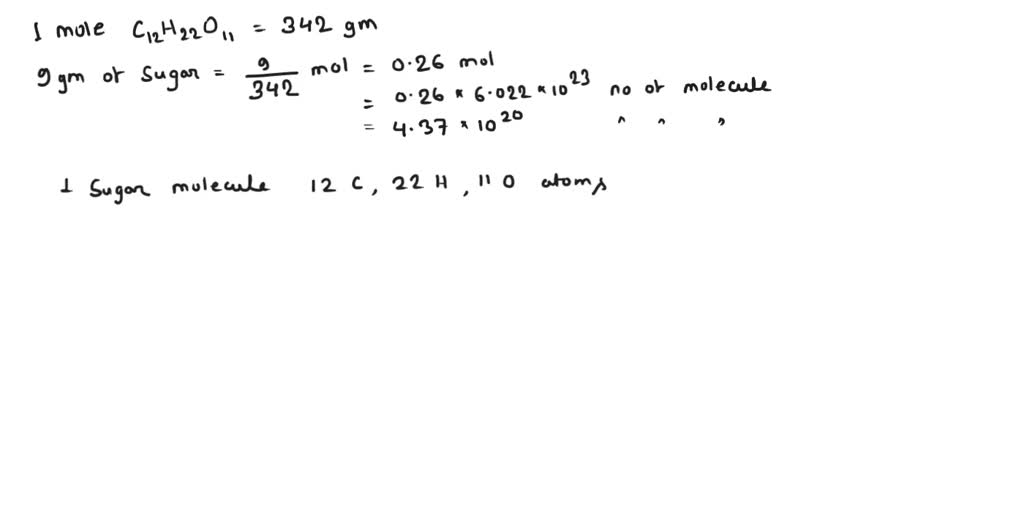 1 mole C₁₂H₂₂O₁₁ = 342 gm
9 gm of Sugar = 9/342 mol = 0.26 mol
= 0.26 * 6.022 * 10²³ no of molecule
= 4.37 * 10²⁰ " " "
1 Sugar molecule 12 C, 22 H, 11 O atoms